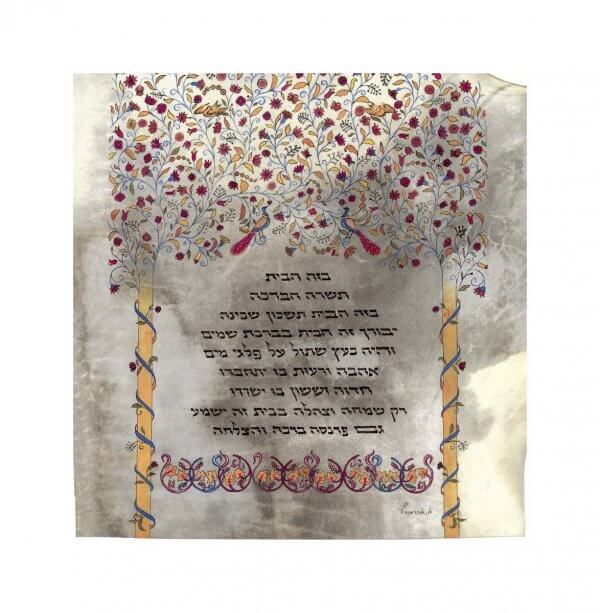 בזה הבית
תשרה הברכה
בזה הבית תשכון שכינה
יבורך זה הבית בברכת שמים
והיה כעץ שתול על פלגי מים
אהבה ורעות בו יתחברו
חדוה וששון בו ישודו
רק שמחה וצהלה בבית זה ישמע
גם פרנסה ברכה והצלחה